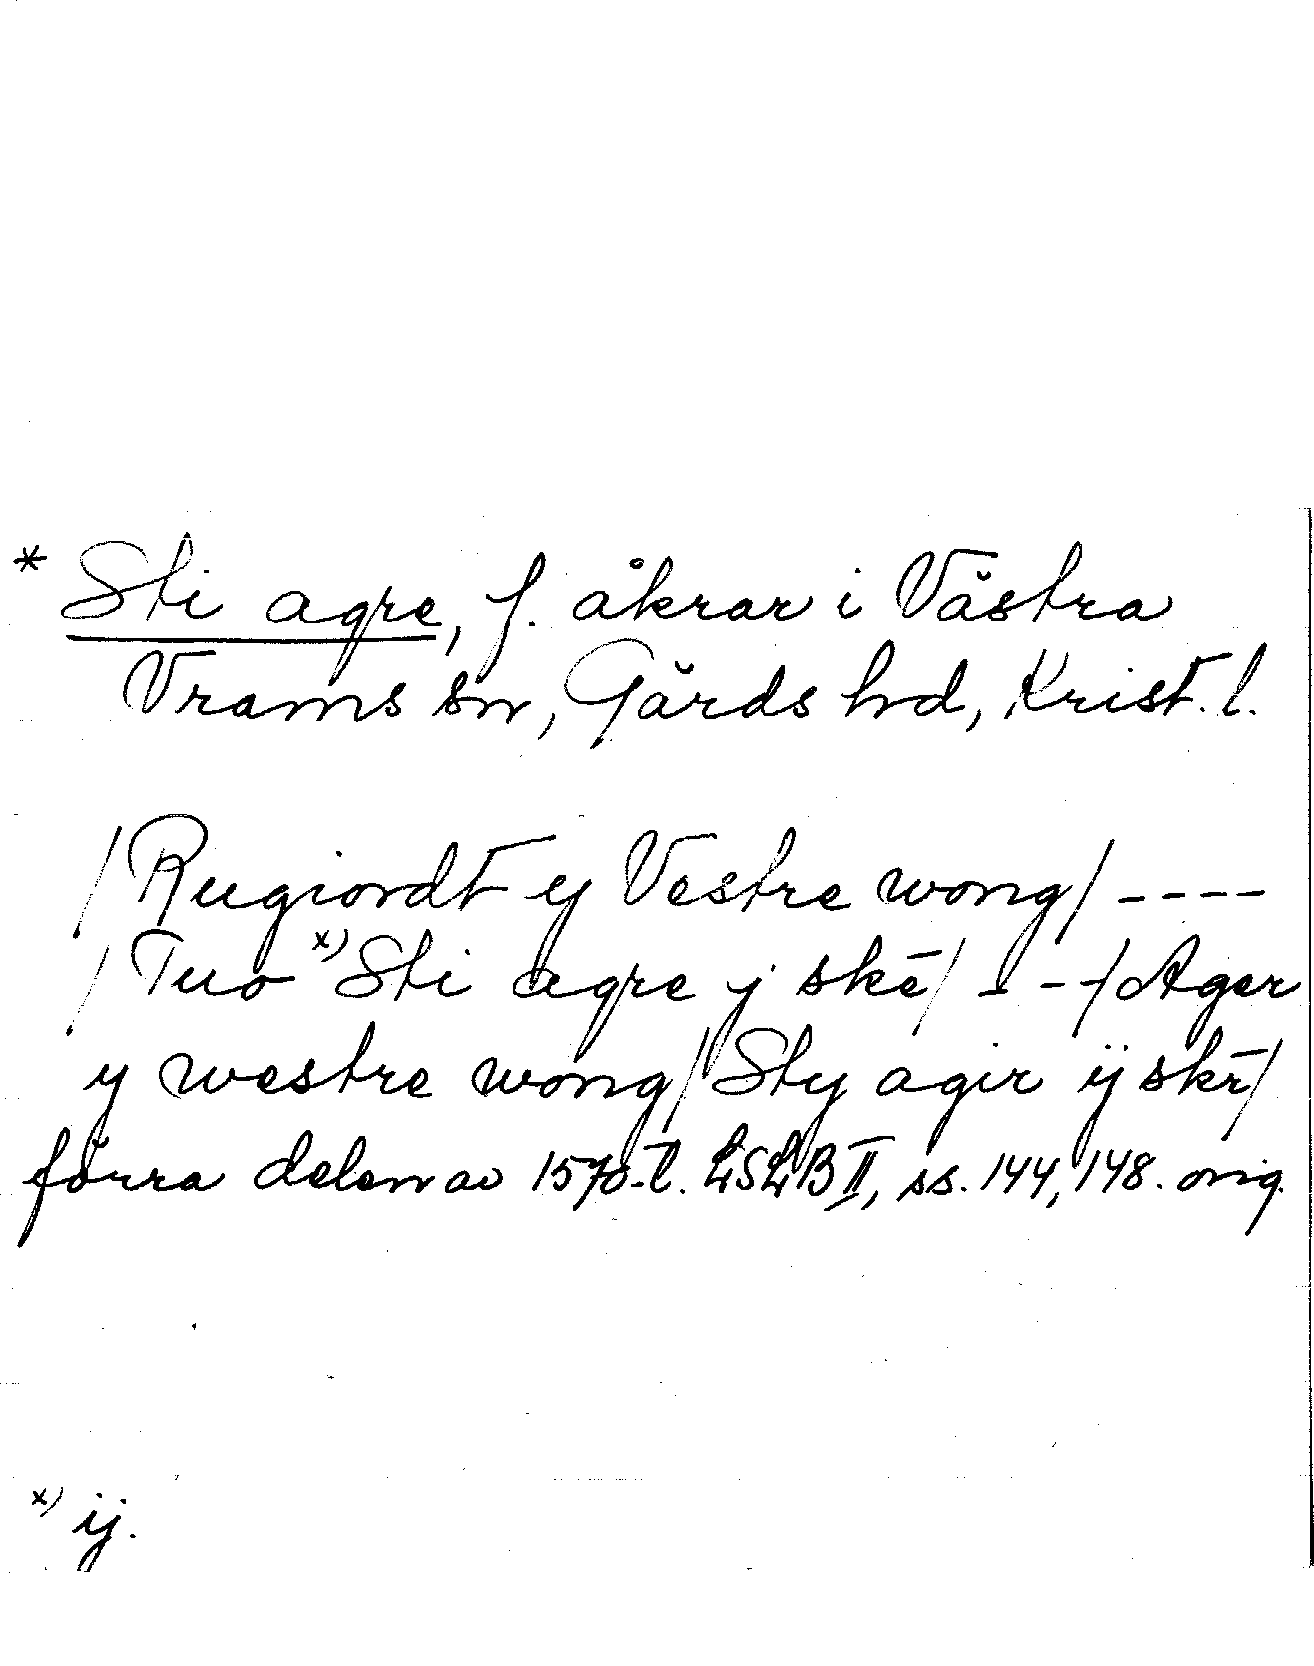 * Sti agre, f. åkrar i Västra
Vrams sn, Gärds hd, Krist. l.
/Rugiordt y Vestre wong/ ----
/Tuo x) Sti agre y skē/ - - -/Ager
y westre wong/Sty agir ÿ skē/
förra delen av 1570-t. LSLB II, ss. 144, 148. orig.
x) ij.